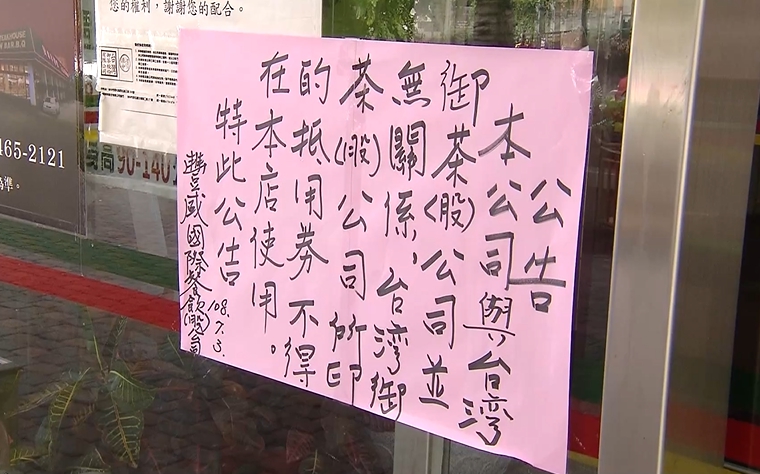 您的權利，謝謝您的配合。
465-2121
為準。
90-140
公告
本公司與台灣
御茶(股)公司並
無關係、台灣御
茶(股)公司所印
的抵用券不得
在本店使用。
特此公告
108.7.3.
豐威國際餐飲(股)公司